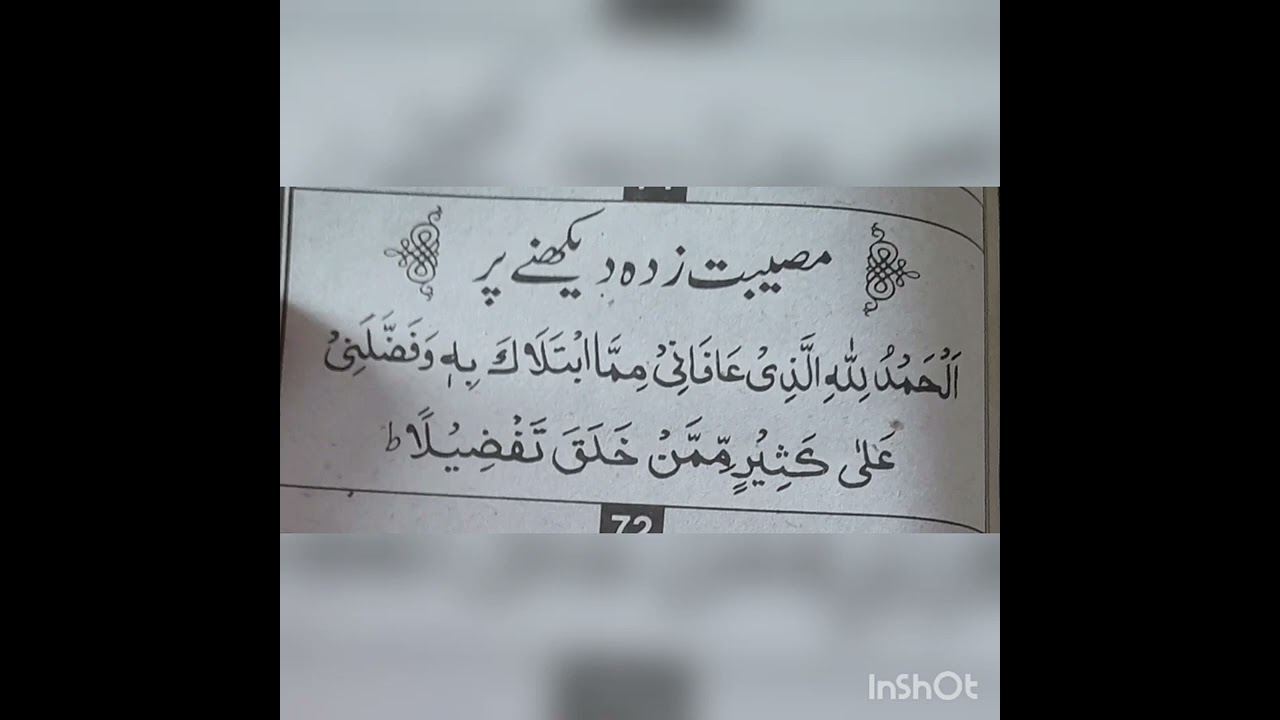 مصیبت زدہ دیکھنے پر
اَلْحَمْدُ لِلّٰهِ الَّذِیْ عَافَانِیْ مِمَّا ابْتَلَاكَ بِهٖ وَفَضَّلَنِیْ
عَلٰی كَثِیْرٍ مِّمَّنْ خَلَقَ تَفْضِیْلًا ط
72
InShOt